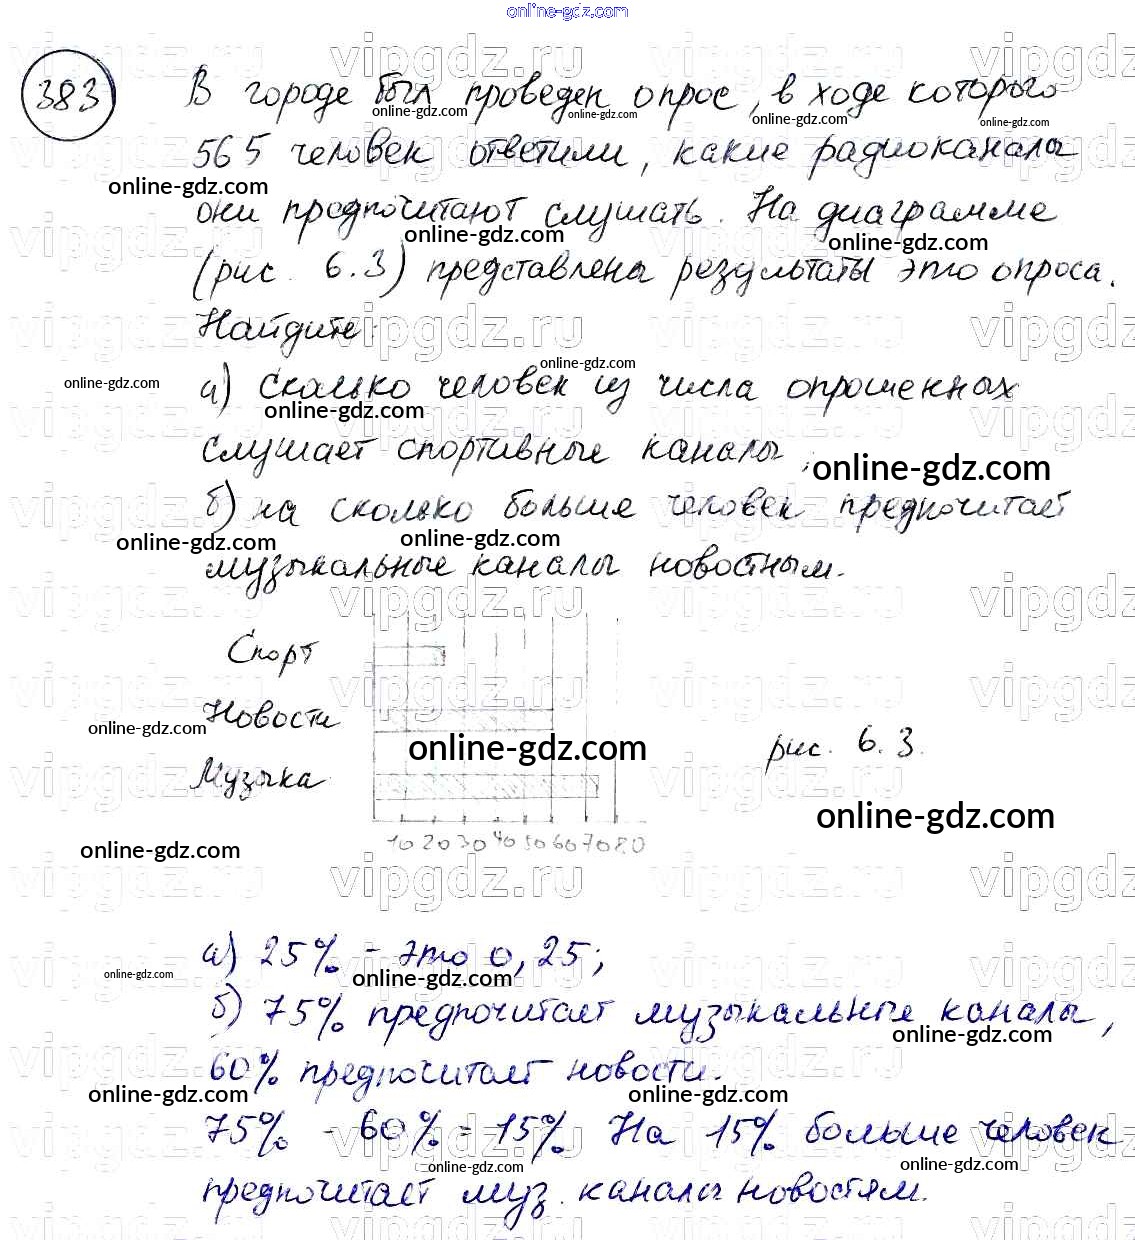 online-gdz.com
383 В городе был проведен опрос, в ходе которого
565 человек ответили, какие радиоканалы
они предпочитают слушать. На диаграмме
(рис. 6.3) представлены результаты этго опроса.
Найдите:
а) сколько человек из числа опрошенных
слушает спортивные каналы;
б) на сколько больше человек предпочитает
музыкальные каналы новостным.
Спорт
Новости
Музыка
рис. 6.3.
10 20 30 40 50 60 70 80
а) 25% - это 0,25;
б) 75% предпочитает музыкальные каналы,
60% предпочитает новости.
75% - 60% = 15% На 15% больше человек
предпочитает муз. каналы новостям.